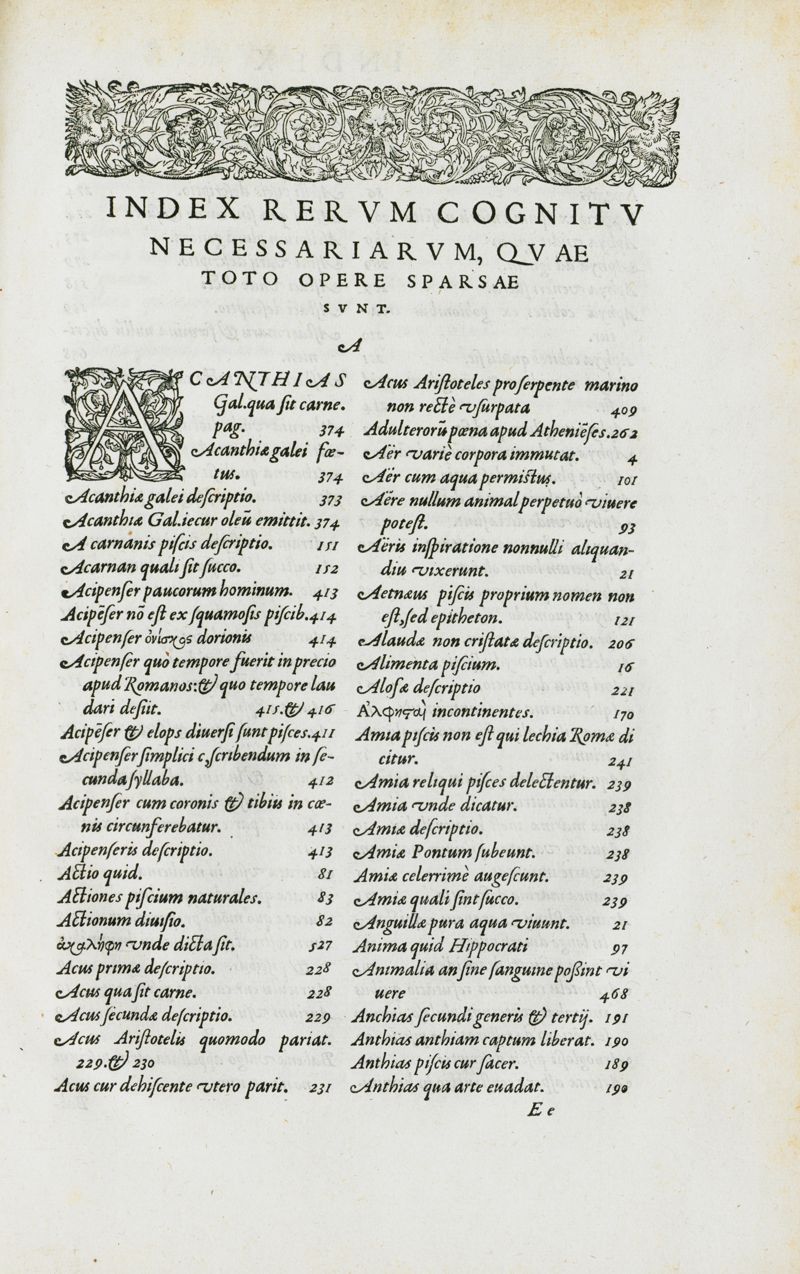 INDEX RERVM COGNITV
NECESSARIARVM, QVAE
TOTO OPERE SPARSAE
SVNT.
A
ACANTHIAS
Gal.qua ſit carne.
pag. 374
Acanthiæ galei fœ-
tus. 374
Acanthiæ galei deſcriptio. 373
Acanthiæ Gal.iecur oleū emittit. 374
Acarnanis piſcis deſcriptio. 151
Acarnan quali ſit ſucco. 152
Acipenſer paucorum hominum. 413
Acipēſer nō eſt ex ſquamoſis piſcib. 414
Acipenſer ὀνίσκος dorionis 414
Acipenſer quò tempore fuerit in precio
apud Romanos:& quo tempore lau
dari deſiit. 415.& 416
Acipēſer & elops diuerſi ſunt piſces. 411
Acipenſer ſimplici c,ſcribendum in ſe-
cunda ſyllaba. 412
Acipenſer cum coronis & tibiis in cœ-
nis circunferebatur. 413
Acipenſeris deſcriptio. 413
Actio quid. 81
Actiones piſcium naturales. 83
Actionum diuiſio. 82
ἀκαλήφη vnde dicta ſit. 527
Acus primæ deſcriptio. 228
Acus qua ſit carne. 228
Acus ſecundæ deſcriptio. 229
Acus Ariſtotelis quomodo pariat.
229.& 230
Acus cur dehiſcente vtero parit. 231
Acus Ariſtoteles pro ſerpente marino
non rectè vſurpata 409
Adulterorū pœna apud Atheniēſes. 262
Aër variè corpora immutat. 4
Aër cum aqua permiſtus. 101
Aëre nullum animal perpetuò viuere
poteſt. 93
Aëris inſpiratione nonnulli aliquan-
diu vixerunt. 21
Aetnæus piſcis proprium nomen non
eſt,ſed epitheton. 121
Alaudæ non criſtatæ deſcriptio. 206
Alimenta piſcium. 16
Aloſæ deſcriptio 221
Αλφηςαὶ incontinentes. 170
Amia piſcis non eſt qui lechia Romæ di
citur. 241
Amia reliqui piſces delectentur. 239
Amia vnde dicatur. 238
Amiæ deſcriptio. 238
Amiæ Pontum ſubeunt. 238
Amiæ celerrimè augeſcunt. 239
Amiæ quali ſint ſucco. 239
Anguillæ pura aqua viuunt. 21
Anima quid Hippocrati 97
Animalia an ſine ſanguine poßint vi
uere 468
Anchias ſecundi generis & tertij. 191
Anthias anthiam captum liberat. 190
Anthias piſcis cur ſacer. 189
Anthias qua arte euadat. 190
E e